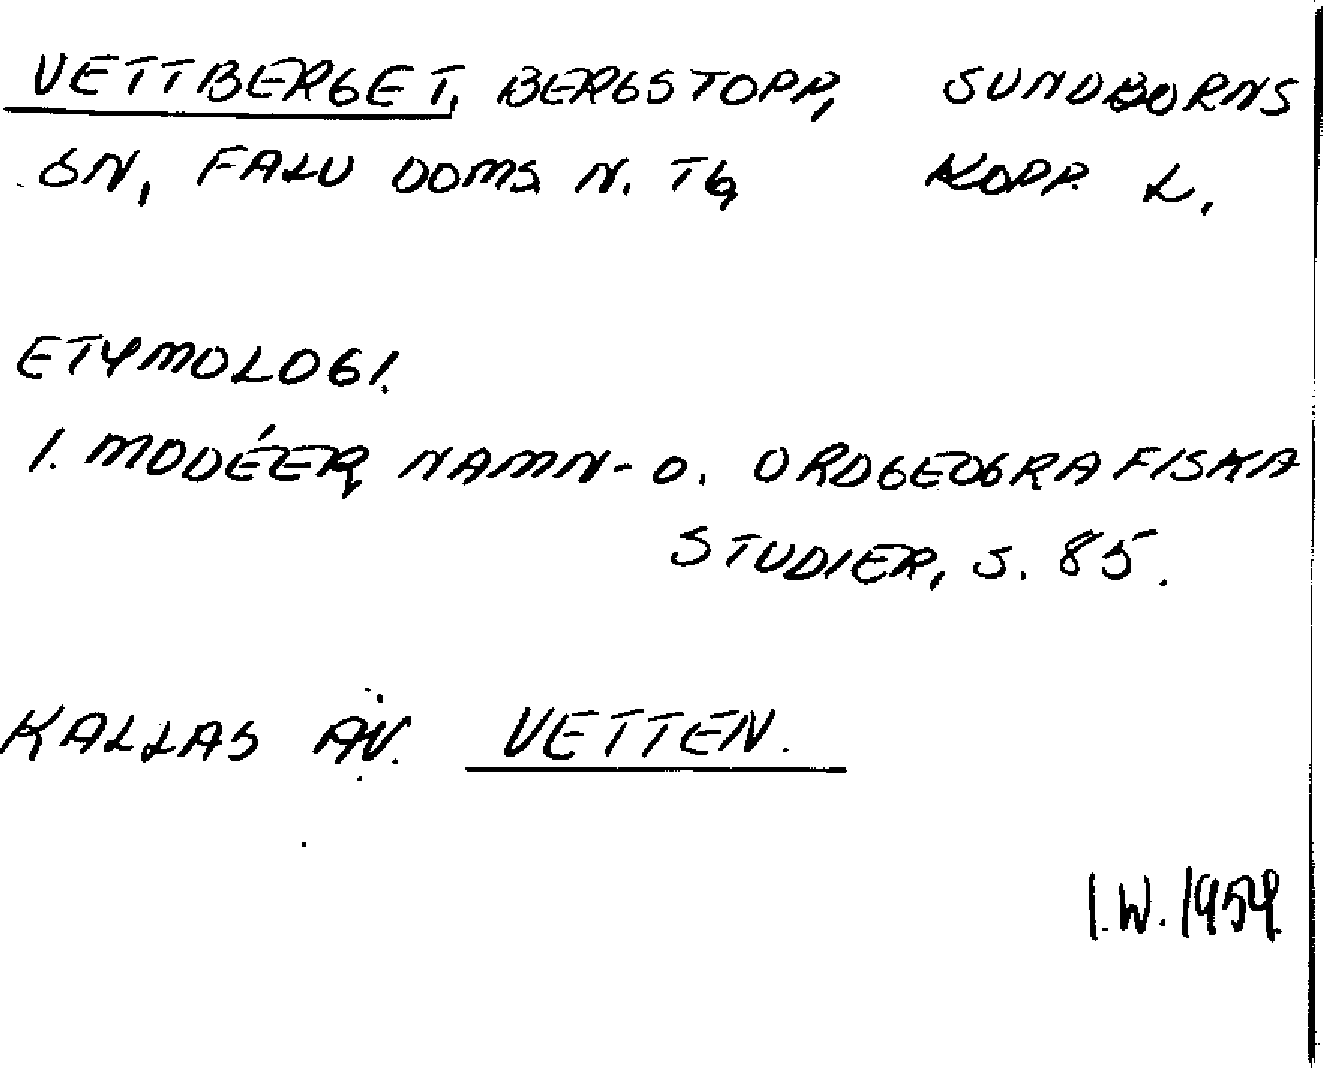 VETTBERGET, BERGSTOPP, SUNDBORNS
SN, FALU DOMS N. TG, KOPP. L.
ETYMOLOGI.
I. MODÉER, NAMN- O. ORDGEOGRAFISKA
STUDIER, S. 85.
KALLAS ÄV. VETTEN.
I.W. 1959.